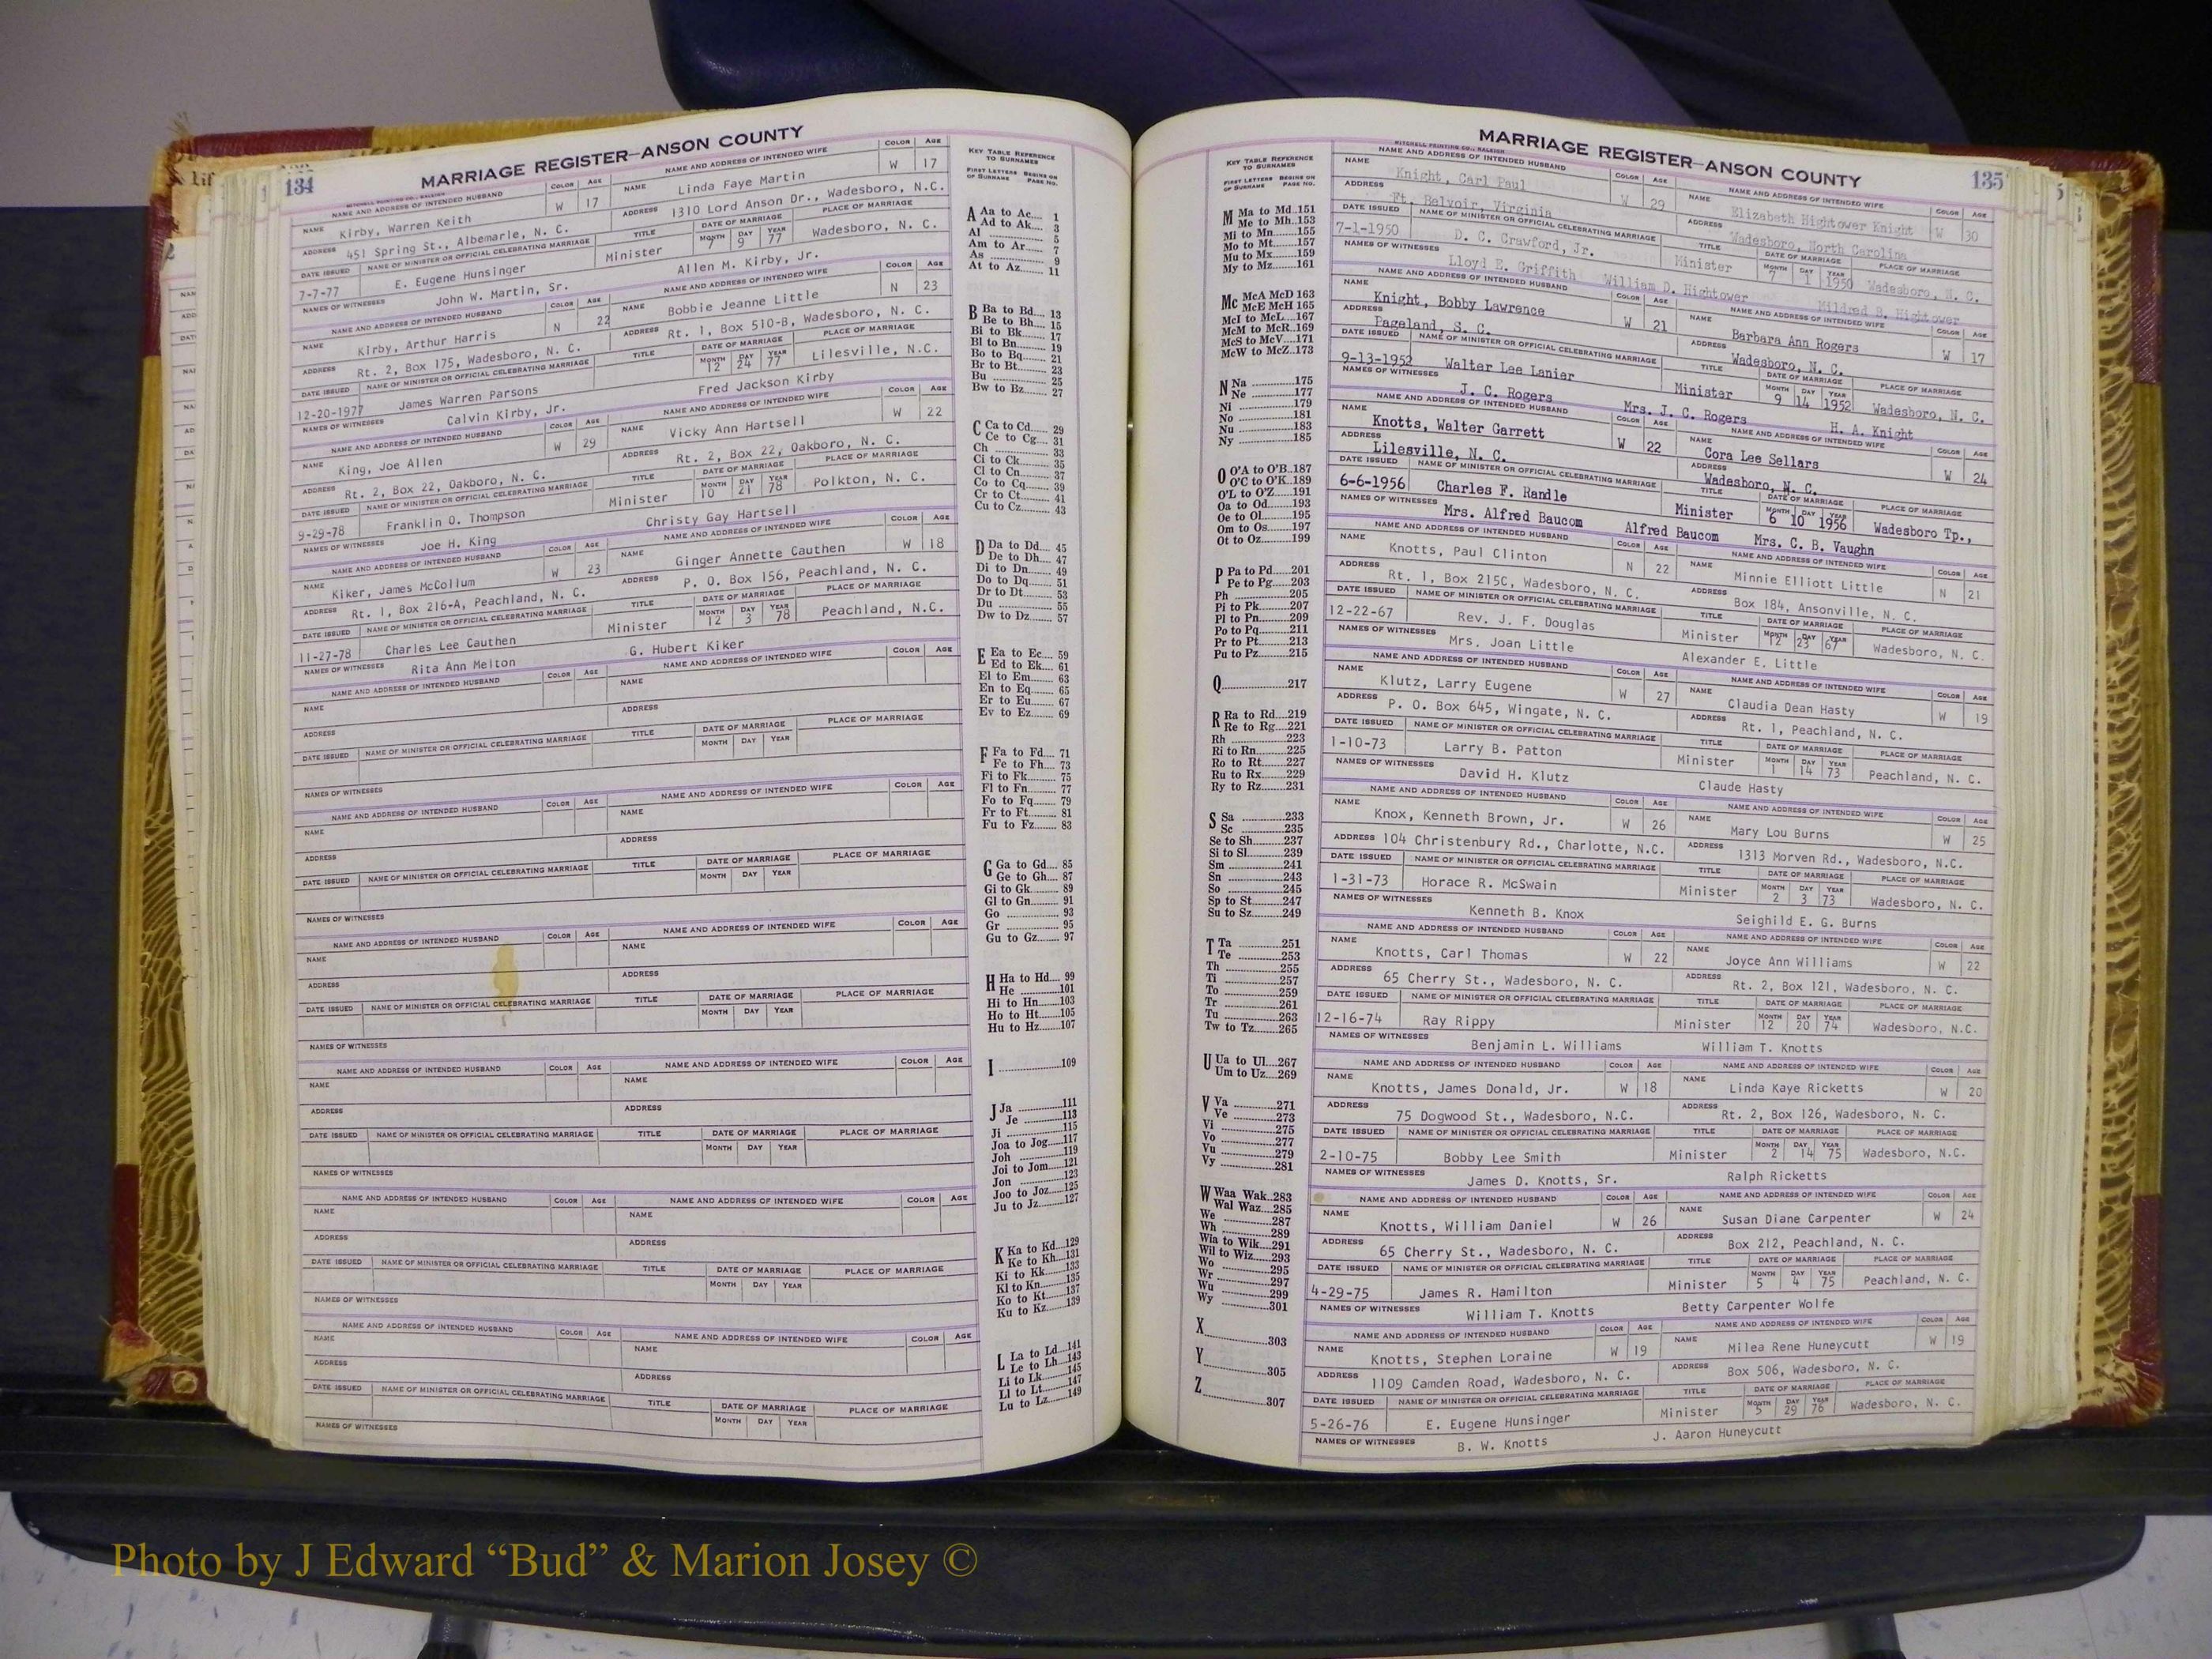 134
MARRIAGE REGISTER—ANSON COUNTY
MITCHELL PRINTING CO., RALEIGH
NAME AND ADDRESS OF INTENDED HUSBAND COLOR AGE NAME AND ADDRESS OF INTENDED WIFE COLOR AGE
NAME Kirby, Warren Keith W 17 NAME Linda Faye Martin W 17
ADDRESS 451 Spring St., Albemarle, N. C. ADDRESS 1310 Lord Anson Dr., Wadesboro, N.C.
DATE ISSUED NAME OF MINISTER OR OFFICIAL CELEBRATING MARRIAGE TITLE DATE OF MARRIAGE PLACE OF MARRIAGE
7-7-77 E. Eugene Hunsinger Minister MONTH 7 DAY 9 YEAR 77 Wadesboro, N. C.
NAMES OF WITNESSES John W. Martin, Sr. Allen M. Kirby, Jr.
NAME AND ADDRESS OF INTENDED HUSBAND COLOR AGE NAME AND ADDRESS OF INTENDED WIFE COLOR AGE
NAME Kirby, Arthur Harris N 22 NAME Bobbie Jeanne Little N 23
ADDRESS Rt. 2, Box 175, Wadesboro, N. C. ADDRESS Rt. 1, Box 510-B, Wadesboro, N. C.
DATE ISSUED NAME OF MINISTER OR OFFICIAL CELEBRATING MARRIAGE TITLE DATE OF MARRIAGE PLACE OF MARRIAGE
12-20-1977 James Warren Parsons MONTH 12 DAY 24 YEAR 77 Lilesville, N.C.
NAMES OF WITNESSES Calvin Kirby, Jr. Fred Jackson Kirby
NAME AND ADDRESS OF INTENDED HUSBAND COLOR AGE NAME AND ADDRESS OF INTENDED WIFE COLOR AGE
NAME King, Joe Allen W 29 NAME Vicky Ann Hartsell W 22
ADDRESS Rt. 2, Box 22, Oakboro, N. C. ADDRESS Rt. 2, Box 22, Oakboro, N. C.
DATE ISSUED NAME OF MINISTER OR OFFICIAL CELEBRATING MARRIAGE TITLE DATE OF MARRIAGE PLACE OF MARRIAGE
9-29-78 Franklin O. Thompson Minister MONTH 10 DAY 21 YEAR 78 Polkton, N. C.
NAMES OF WITNESSES Joe H. King Christy Gay Hartsell
NAME AND ADDRESS OF INTENDED HUSBAND COLOR AGE NAME AND ADDRESS OF INTENDED WIFE COLOR AGE
NAME Kiker, James McCollum W 23 NAME Ginger Annette Cauthen W 18
ADDRESS Rt. 1, Box 216-A, Peachland, N. C. ADDRESS P. O. Box 156, Peachland, N. C.
DATE ISSUED NAME OF MINISTER OR OFFICIAL CELEBRATING MARRIAGE TITLE DATE OF MARRIAGE PLACE OF MARRIAGE
11-27-78 Charles Lee Cauthen Minister MONTH 12 DAY 3 YEAR 78 Peachland, N.C.
NAMES OF WITNESSES Rita Ann Melton G. Hubert Kiker
NAME AND ADDRESS OF INTENDED HUSBAND COLOR AGE NAME AND ADDRESS OF INTENDED WIFE COLOR AGE
NAME NAME
ADDRESS ADDRESS
DATE ISSUED NAME OF MINISTER OR OFFICIAL CELEBRATING MARRIAGE TITLE DATE OF MARRIAGE PLACE OF MARRIAGE
MONTH DAY YEAR
NAMES OF WITNESSES
NAME AND ADDRESS OF INTENDED HUSBAND COLOR AGE NAME AND ADDRESS OF INTENDED WIFE COLOR AGE
NAME NAME
ADDRESS ADDRESS
DATE ISSUED NAME OF MINISTER OR OFFICIAL CELEBRATING MARRIAGE TITLE DATE OF MARRIAGE PLACE OF MARRIAGE
MONTH DAY YEAR
NAMES OF WITNESSES
NAME AND ADDRESS OF INTENDED HUSBAND COLOR AGE NAME AND ADDRESS OF INTENDED WIFE COLOR AGE
NAME NAME
ADDRESS ADDRESS
DATE ISSUED NAME OF MINISTER OR OFFICIAL CELEBRATING MARRIAGE TITLE DATE OF MARRIAGE PLACE OF MARRIAGE
MONTH DAY YEAR
NAMES OF WITNESSES
NAME AND ADDRESS OF INTENDED HUSBAND COLOR AGE NAME AND ADDRESS OF INTENDED WIFE COLOR AGE
NAME NAME
ADDRESS ADDRESS
DATE ISSUED NAME OF MINISTER OR OFFICIAL CELEBRATING MARRIAGE TITLE DATE OF MARRIAGE PLACE OF MARRIAGE
MONTH DAY YEAR
NAMES OF WITNESSES
NAME AND ADDRESS OF INTENDED HUSBAND COLOR AGE NAME AND ADDRESS OF INTENDED WIFE COLOR AGE
NAME NAME
ADDRESS ADDRESS
DATE ISSUED NAME OF MINISTER OR OFFICIAL CELEBRATING MARRIAGE TITLE DATE OF MARRIAGE PLACE OF MARRIAGE
MONTH DAY YEAR
NAMES OF WITNESSES
NAME AND ADDRESS OF INTENDED HUSBAND COLOR AGE NAME AND ADDRESS OF INTENDED WIFE COLOR AGE
NAME NAME
ADDRESS ADDRESS
DATE ISSUED NAME OF MINISTER OR OFFICIAL CELEBRATING MARRIAGE TITLE DATE OF MARRIAGE PLACE OF MARRIAGE
MONTH DAY YEAR
NAMES OF WITNESSES
KEY TABLE REFERENCE
TO SURNAMES
FIRST LETTERS OF SURNAME BEGINS ON PAGE NO.
A Aa to Ac.... 1
Ad to Ak.... 3
Al ............ 5
Am to Ar.... 7
As ............ 9
At to Az.... 11
B Ba to Bd.... 13
Be to Bh.... 15
Bi to Bk.... 17
Bl to Bn.... 19
Bo to Bq.... 21
Br to Bt.... 23
Bu ............ 25
Bw to Bz.... 27
C Ca to Cd.... 29
Ce to Cg.... 31
Ch ............ 33
Ci to Ck.... 35
Cl to Cn.... 37
Co to Cq.... 39
Cr to Ct.... 41
Cu to Cz.... 43
D Da to Dd.... 45
De to Dh.... 47
Di to Dn.... 49
Do to Dq.... 51
Dr to Dt.... 53
Du ............ 55
Dw to Dz.... 57
E Ea to Ec.... 59
Ed to Ek.... 61
El to Em.... 63
En to Eq.... 65
Er to Eu.... 67
Ev to Ez.... 69
F Fa to Fd.... 71
Fe to Fh.... 73
Fi to Fk.... 75
Fl to Fn.... 77
Fo to Fq.... 79
Fr to Ft.... 81
Fu to Fz.... 83
G Ga to Gd.... 85
Ge to Gh.... 87
Gi to Gk.... 89
Gl to Gn.... 91
Go ............ 93
Gr ............ 95
Gu to Gz.... 97
H Ha to Hd.... 99
He ............101
Hi to Hn....103
Ho to Ht....105
Hu to Hz....107
I ............109
J Ja ............111
Je ............113
Ji ............115
Joa to Jog....117
Joh ............119
Joi to Jom....121
Jon ............123
Joo to Joz....125
Ju to Jz....127
K Ka to Kd....129
Ke to Kh....131
Ki to Kk....133
Kl to Kn....135
Ko to Kt....137
Ku to Kz....139
L La to Ld....141
Le to Lh....143
Li to Lk....145
Ll to Lt....147
Lu to Lz....149
KEY TABLE REFERENCE
TO SURNAMES
FIRST LETTERS OF SURNAME BEGINS ON PAGE NO.
M Ma to Md..151
Me to Mh..153
Mi to Mn....155
Mo to Mt....157
Mu to Mx....159
My to Mz....161
Mc McA McD 163
McE McH 165
McI to McL....167
McM to McR..169
McS to McV....171
McW to McZ..173
N Na ............175
Ne ............177
Ni ............179
No ............181
Nu ............183
Ny ............185
O O'A to O'B..187
O'C to O'K..189
O'L to O'Z....191
Oa to Od....193
Oe to Ol....195
Om to Os....197
Ot to Oz....199
P Pa to Pd....201
Pe to Pg....203
Ph ............205
Pi to Pk....207
Pl to Pn....209
Po to Pq....211
Pr to Pt....213
Pu to Pz....215
Q............217
R Ra to Rd....219
Re to Rg....221
Rh ............223
Ri to Rn....225
Ro to Rt....227
Ru to Rx....229
Ry to Rz....231
S Sa ............233
Sc ............235
Se to Sh....237
Si to Sl....239
Sm ............241
Sn ............243
So ............245
Sp to St....247
Su to Sz....249
T Ta ............251
Te ............253
Th ............255
Ti ............257
To ............259
Tr ............261
Tu ............263
Tw to Tz....265
U Ua to Ul....267
Um to Uz....269
V Va ............271
Ve ............273
Vi ............275
Vo ............277
Vu ............279
Vy ............281
W Waa Wak..283
Wal Waz....285
We ............287
Wh ............289
Wia to Wik....291
Wil to Wiz....293
Wo ............295
Wr ............297
Wu ............299
Wy ............301
X............303
Y............305
Z............307
135
MARRIAGE REGISTER—ANSON COUNTY
MITCHELL PRINTING CO., RALEIGH
NAME AND ADDRESS OF INTENDED HUSBAND COLOR AGE NAME AND ADDRESS OF INTENDED WIFE COLOR AGE
NAME Knight, Carl Paul W 29 NAME Elizabeth Hightower Knight W 30
ADDRESS Ft. Belvoir, Virginia ADDRESS Wadesboro, North Carolina
DATE ISSUED NAME OF MINISTER OR OFFICIAL CELEBRATING MARRIAGE TITLE DATE OF MARRIAGE PLACE OF MARRIAGE
7-1-1950 D. C. Crawford, Jr. Minister MONTH 7 DAY 1 YEAR 1950 Wadesboro, N. C.
NAMES OF WITNESSES Lloyd E. Griffith William D. Hightower Mildred B. Hightower
NAME AND ADDRESS OF INTENDED HUSBAND COLOR AGE NAME AND ADDRESS OF INTENDED WIFE COLOR AGE
NAME Knight, Bobby Lawrence W 21 NAME Barbara Ann Rogers W 17
ADDRESS Pageland, S. C. ADDRESS Wadesboro, N. C.
DATE ISSUED NAME OF MINISTER OR OFFICIAL CELEBRATING MARRIAGE TITLE DATE OF MARRIAGE PLACE OF MARRIAGE
9-13-1952 Walter Lee Lanier Minister MONTH 9 DAY 14 YEAR 1952 Wadesboro, N. C.
NAMES OF WITNESSES J. C. Rogers Mrs. J. C. Rogers H. A. Knight
NAME AND ADDRESS OF INTENDED HUSBAND COLOR AGE NAME AND ADDRESS OF INTENDED WIFE COLOR AGE
NAME Knotts, Walter Garrett W 22 NAME Cora Lee Sellars W 24
ADDRESS Lilesville, N. C. ADDRESS Wadesboro, N. C.
DATE ISSUED NAME OF MINISTER OR OFFICIAL CELEBRATING MARRIAGE TITLE DATE OF MARRIAGE PLACE OF MARRIAGE
6-6-1956 Charles F. Randle Minister MONTH 6 DAY 10 YEAR 1956 Wadesboro Tp.,
NAMES OF WITNESSES Mrs. Alfred Baucom Alfred Baucom Mrs. C. B. Vaughn
NAME AND ADDRESS OF INTENDED HUSBAND COLOR AGE NAME AND ADDRESS OF INTENDED WIFE COLOR AGE
NAME Knotts, Paul Clinton N 22 NAME Minnie Elliott Little N 21
ADDRESS Rt. 1, Box 215C, Wadesboro, N. C. ADDRESS Box 184, Ansonville, N. C.
DATE ISSUED NAME OF MINISTER OR OFFICIAL CELEBRATING MARRIAGE TITLE DATE OF MARRIAGE PLACE OF MARRIAGE
12-22-67 Rev. J. F. Douglas Minister MONTH 12 DAY 23 YEAR 67 Wadesboro, N. C.
NAMES OF WITNESSES Mrs. Joan Little Alexander E. Little
NAME AND ADDRESS OF INTENDED HUSBAND COLOR AGE NAME AND ADDRESS OF INTENDED WIFE COLOR AGE
NAME Klutz, Larry Eugene W 27 NAME Claudia Dean Hasty W 19
ADDRESS P. O. Box 645, Wingate, N. C. ADDRESS Rt. 1, Peachland, N. C.
DATE ISSUED NAME OF MINISTER OR OFFICIAL CELEBRATING MARRIAGE TITLE DATE OF MARRIAGE PLACE OF MARRIAGE
1-10-73 Larry B. Patton Minister MONTH 1 DAY 14 YEAR 73 Peachland, N. C.
NAMES OF WITNESSES David H. Klutz Claude Hasty
NAME AND ADDRESS OF INTENDED HUSBAND COLOR AGE NAME AND ADDRESS OF INTENDED WIFE COLOR AGE
NAME Knox, Kenneth Brown, Jr. W 26 NAME Mary Lou Burns W 25
ADDRESS 104 Christenbury Rd., Charlotte, N.C. ADDRESS 1313 Morven Rd., Wadesboro, N.C.
DATE ISSUED NAME OF MINISTER OR OFFICIAL CELEBRATING MARRIAGE TITLE DATE OF MARRIAGE PLACE OF MARRIAGE
1-31-73 Horace R. McSwain Minister MONTH 2 DAY 3 YEAR 73 Wadesboro, N. C.
NAMES OF WITNESSES Kenneth B. Knox Seighild E. G. Burns
NAME AND ADDRESS OF INTENDED HUSBAND COLOR AGE NAME AND ADDRESS OF INTENDED WIFE COLOR AGE
NAME Knotts, Carl Thomas W 22 NAME Joyce Ann Williams W 22
ADDRESS 65 Cherry St., Wadesboro, N. C. ADDRESS Rt. 2, Box 121, Wadesboro, N. C.
DATE ISSUED NAME OF MINISTER OR OFFICIAL CELEBRATING MARRIAGE TITLE DATE OF MARRIAGE PLACE OF MARRIAGE
12-16-74 Ray Rippy Minister MONTH 12 DAY 20 YEAR 74 Wadesboro, N.C.
NAMES OF WITNESSES Benjamin L. Williams William T. Knotts
NAME AND ADDRESS OF INTENDED HUSBAND COLOR AGE NAME AND ADDRESS OF INTENDED WIFE COLOR AGE
NAME Knotts, James Donald, Jr. W 18 NAME Linda Kaye Ricketts W 20
ADDRESS 75 Dogwood St., Wadesboro, N.C. ADDRESS Rt. 2, Box 126, Wadesboro, N. C.
DATE ISSUED NAME OF MINISTER OR OFFICIAL CELEBRATING MARRIAGE TITLE DATE OF MARRIAGE PLACE OF MARRIAGE
2-10-75 Bobby Lee Smith Minister MONTH 2 DAY 14 YEAR 75 Wadesboro, N.C.
NAMES OF WITNESSES James D. Knotts, Sr. Ralph Ricketts
NAME AND ADDRESS OF INTENDED HUSBAND COLOR AGE NAME AND ADDRESS OF INTENDED WIFE COLOR AGE
NAME Knotts, William Daniel W 26 NAME Susan Diane Carpenter W 24
ADDRESS 65 Cherry St., Wadesboro, N. C. ADDRESS Box 212, Peachland, N. C.
DATE ISSUED NAME OF MINISTER OR OFFICIAL CELEBRATING MARRIAGE TITLE DATE OF MARRIAGE PLACE OF MARRIAGE
4-29-75 James R. Hamilton Minister MONTH 5 DAY 4 YEAR 75 Peachland, N. C.
NAMES OF WITNESSES William T. Knotts Betty Carpenter Wolfe
NAME AND ADDRESS OF INTENDED HUSBAND COLOR AGE NAME AND ADDRESS OF INTENDED WIFE COLOR AGE
NAME Knotts, Stephen Loraine W 19 NAME Milea Rene Huneycutt W 19
ADDRESS 1109 Camden Road, Wadesboro, N. C. ADDRESS Box 506, Wadesboro, N. C.
DATE ISSUED NAME OF MINISTER OR OFFICIAL CELEBRATING MARRIAGE TITLE DATE OF MARRIAGE PLACE OF MARRIAGE
5-26-76 E. Eugene Hunsinger Minister MONTH 5 DAY 29 YEAR 76 Wadesboro, N. C.
NAMES OF WITNESSES B. W. Knotts J. Aaron Huneycutt
Photo by J Edward “Bud” & Marion Josey ©